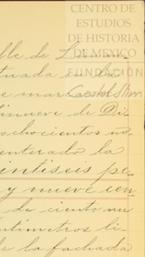 CENTRO DE
ESTUDIOS
DE HISTORIA
DE MEXICO
FUNDACIÓN
lle de
tuada
e mar
tinueve de Di-
schocientos no-
enterado la
intiseis pe-
y nueve cen
de ciento nu
ntimetros li-
de la fachada